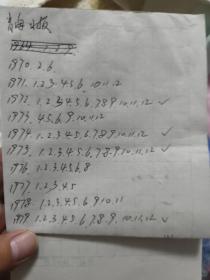 青海日报
1970. 2.6.
1971. 1.2.3.4.5.6. 10.11.12
1972. 1.2.3.4.5.6.7.8.9.10.11.12 ✓
1973. 4.5.6.9.10.11.12
1974. 1.2.3.4.5.6.7.8.9.10.11.12 ✓
1975. 1.2.3.4.5.6.7.8.9.10.11.12 ✓
1976. 1.2.3.4.5.6.8
1977. 1.2.3.4.5
1978. 1.2.3.4.5.6.9.10.11
1979. 1.2.3.4.5.6.7.8.9.10.11.12 ✓